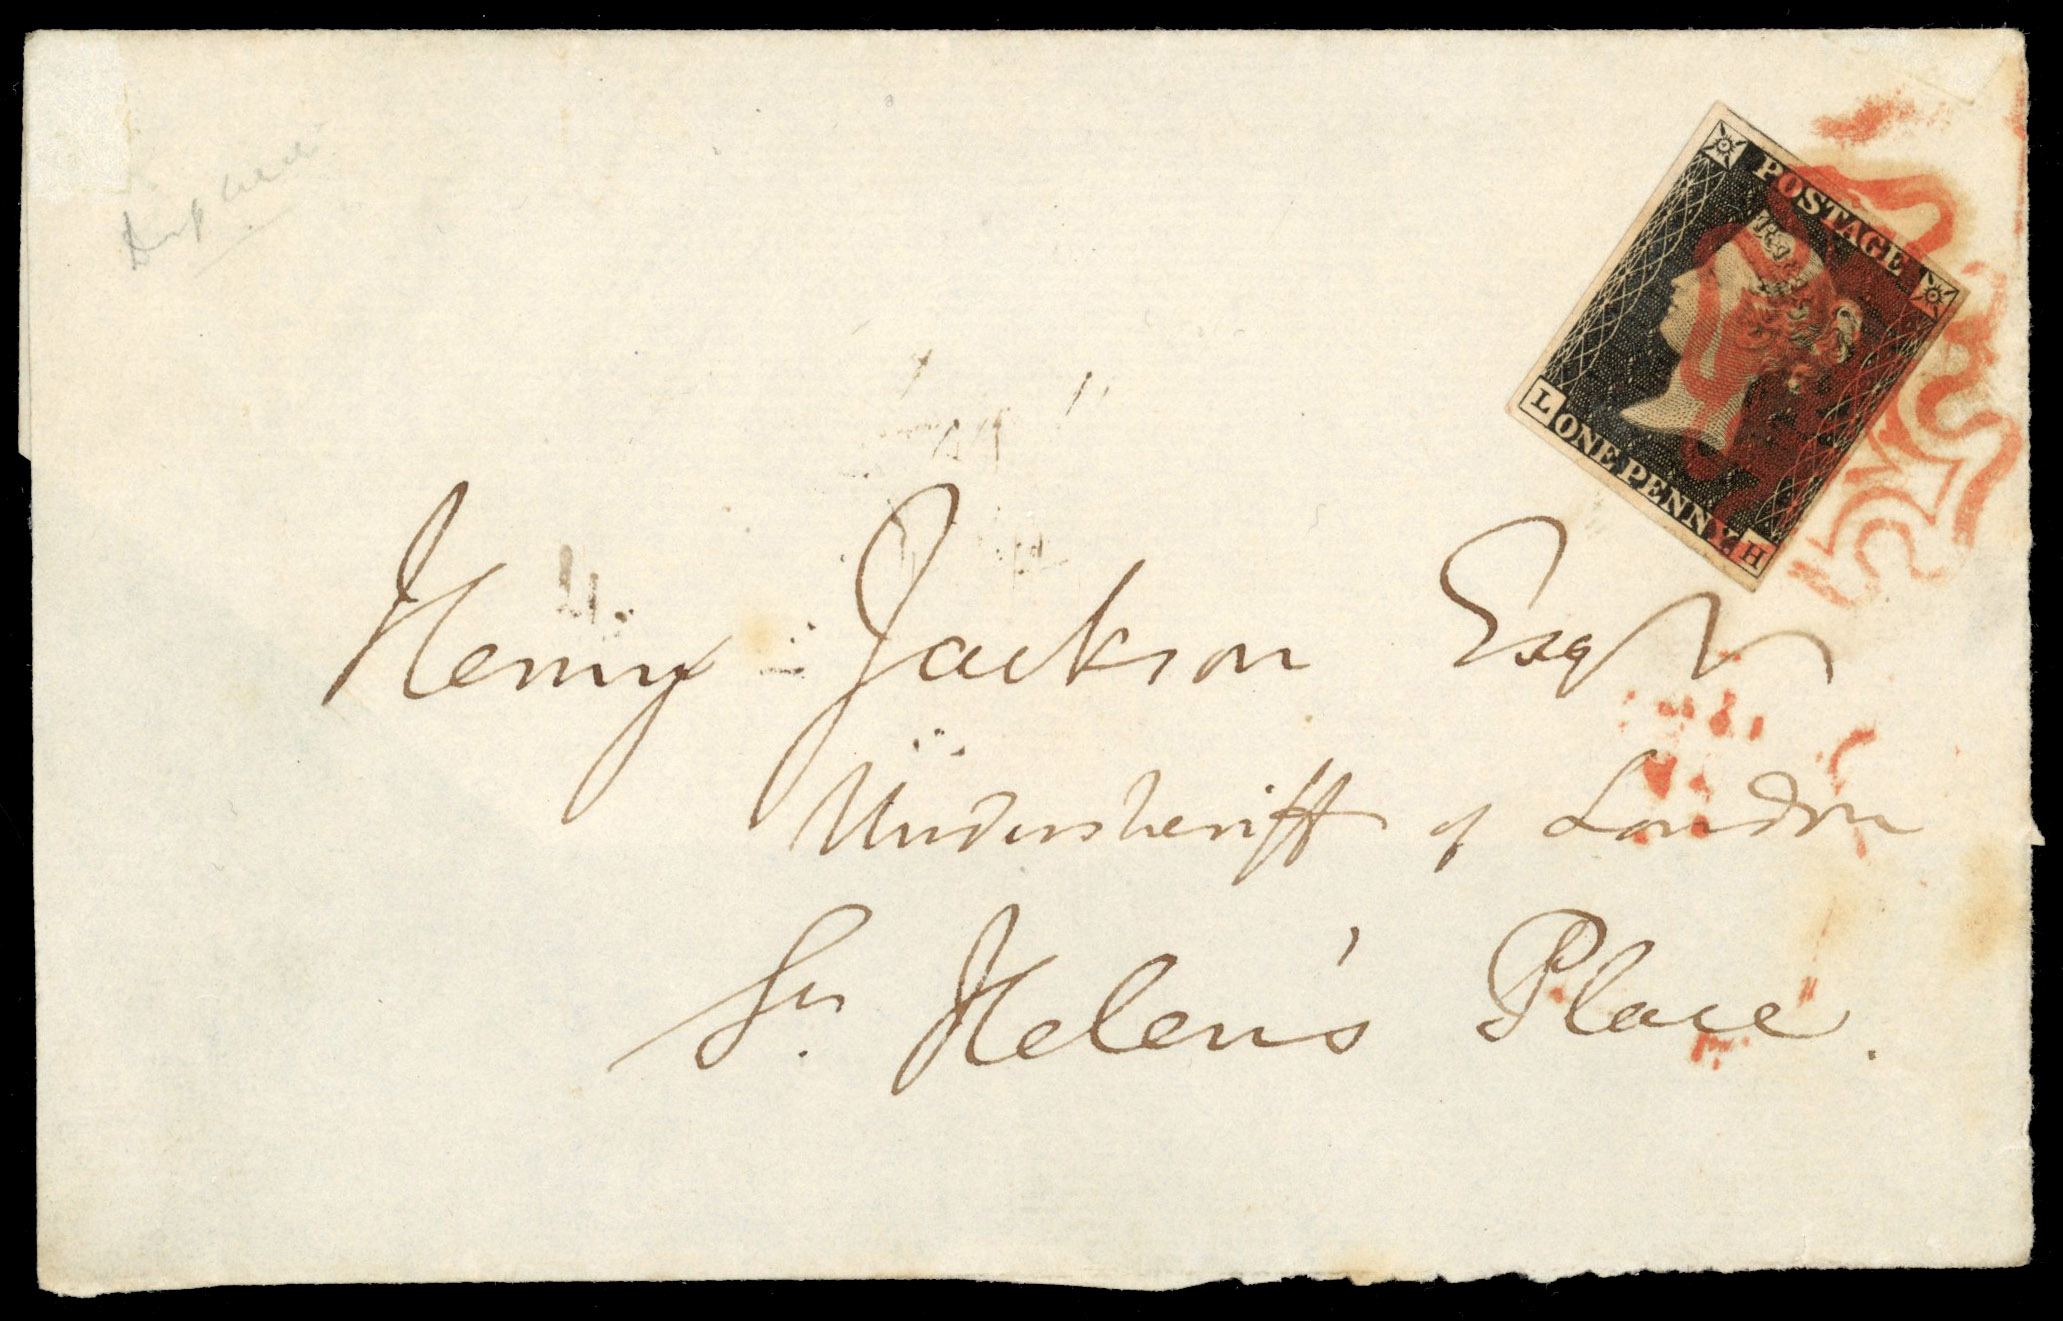 POSTAGE
L ONE PENNY. H
Henry Jackson Esqr
Undersheriff of London
St. Helen's Place.